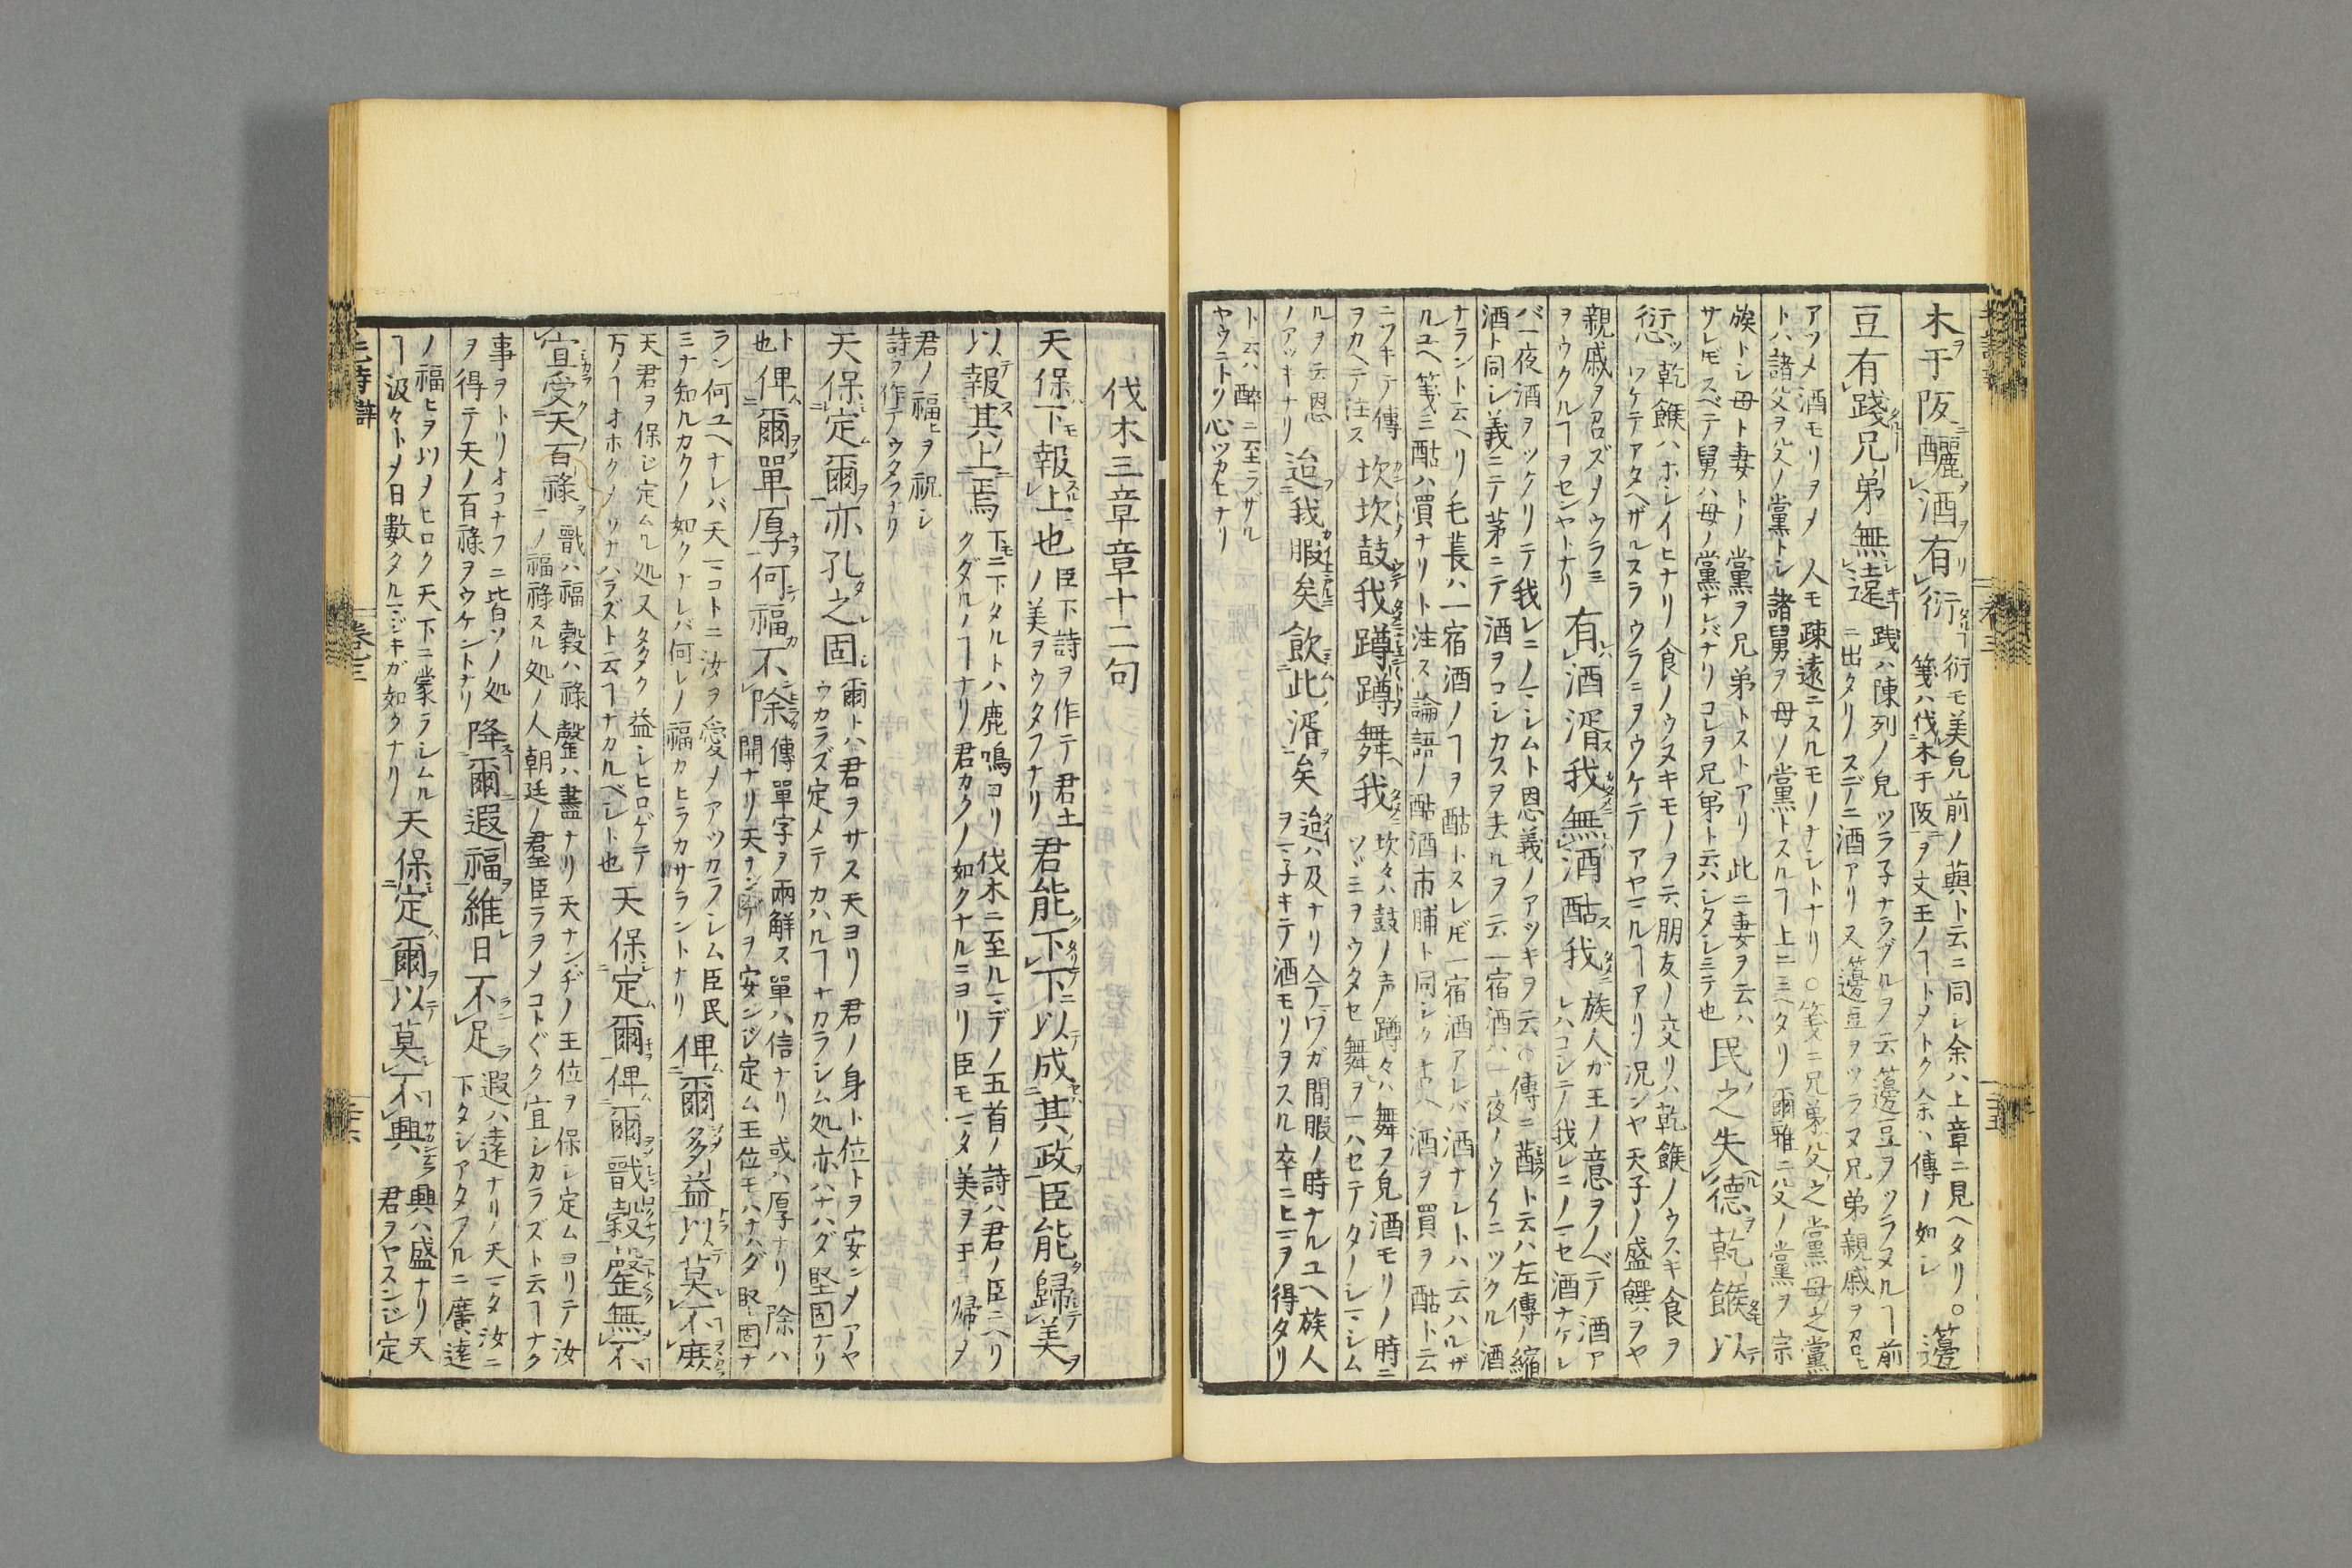 木ヲ于阪ニ釃レ酒ヲ有リレ衍 衍モ美皃前ノ藇ト云ニ同シ余ハ上章ニ見ヘタリ○籩
箋ハ伐木于阪ヲ文王ノヿトメトク余ハ傳ノ如シ
豆有レ踐兄弟無レ遠 踐ハ陳列ノ皃ツラ子ナラブルヲ云籩豆ヲツラヌルヿ前
ニ出タリスデニ酒アリ又籩豆ヲツラヌ兄弟親戚ヲ召ヒ
アツメ酒モリヲメ人モ疎遠ニスルモノナシトナリ○箋ニ兄弟父之黨母之黨
トハ諸父ヲハ父ノ黨トシ諸舅ヲ母ノ黨トスルヿ上ニミヘタリ爾雅ニ父ノ黨ヲ宗
族トシ母ト妻トノ黨ヲ兄弟トストアリ此ニ妻ヲ云ハ
サレドモスベテ舅ハ母ノ黨ナレバナリコレヲ兄弟ト云ハシタシミテ也 民之失レ德ヲ乾餱以テ
愆 乾餱ハホシイヒナリ食ノウスキモノヲ云朋友ノ交リハ乾餱ノウスキ食ヲ
ワケテアタヘザルスラウラミヲウケテアヤマルヿアリ況ンヤ天子ノ盛饌ヲヤ
親戚ヲ召ズメウラミ
ヲウクルヿヲセンヤトナリ 有レ酒湑我無レ酒酤我 族人ガ王ノ意ヲノベテ酒ア
レハコシテ我レニノマセ酒ナケレ
バ一夜酒ヲツクリテ我レニノマシムト恩義ノアツキヲ云○傳ニ莤ト云ハ左傳ノ縮
酒ト同シ義ニテ茅ニテ酒ヲコシカスヲ去ルヲ云一宿酒ハ一夜ノウチニツクル酒
ナラント云ヘリ毛萇ハ一宿酒ノヿヲ酤トスレドモ一宿酒アレバ酒ナシトハ云ハルザ
ルユヘ箋ニ酤ハ買ナリト注ス論語ノ酤酒市脯ト同シク酒ヲ買ヲ酤ト云
ニツキテ傳
ヲカヘテ注ス 坎坎鼓我蹲蹲舞我 坎々ハ鼓ノ声蹲々ハ舞フ皃酒モリノ時ニ
ツヾミヲウタセ舞ヲマハセテタノシマシム
ルヲ云恩
ノアツキナリ 迨我暇矣飲此湑矣 迨ハ及ナリ今ワガ間暇ノ時ナルユヘ族人
ヲマ子キテ酒モリヲスル卒ニヒマヲ得タリ
ト云ハ醉ニ至ラザル
ヤウニトリ心ツカヒナリ
伐木三章章十二句
天保下報レ上也 臣下詩ヲ作テ君上
ノ美ヲウタフナリ 君能下レ下以テ成二其政一臣能歸レ美ヲ
以テ報二其ノ上一焉 下モニ下タルトハ鹿鳴ヨリ伐木ニ至ルマデノ五首ノ詩ハ君ノ臣ニヘリ
クダルノヿナリ君カクノ如クナルニヨリ臣モマタ美ヲ王ニ帰メ
君ノ福ヒヲ祝シ
詩ヲ作テウタフナリ
天保定爾亦孔之固 爾トハ君ヲサス天ヨリ君ノ身ト位トヲ安ンメアヤ
ウカラズ定メテカハルヿナカラシム処亦ハナハダ堅固ナリ
ト
也 俾爾單厚何福不除 傳單字ヲ兩解ス單ハ信ナリ或ハ厚ナリ除ハ
開ナリ天ナンヂヲ安ンジ定ム王位モハナハダ堅固ナ
ラン何ユヘナレバ天マコトニ汝ヲ愛メアツカラシム臣民
ミナ知ルカクノ如クナレバ何レノ福カヒラカサラントナリ 俾爾多益以莫不庶
天君ヲ保シ定ムル処又タタク益シヒロゲテ
万ノヿオホクメソナハラズト云ヿナカルベシト也 天保定爾俾爾戩穀罄無不
宜受天百祿 戩ハ福穀ハ祿罄ハ盡ナリ天ナンヂノ王位ヲ保シ定ムヨリテ汝
ノ福祿スル処ノ人朝廷ノ羣臣ラヲメコトゞク宜シカラズト云ヿナク
事ヲトリオコナフニ皆ソノ処
ヲ得テ天ノ百祿ヲウケントナリ 降爾遐福維日不足 遐ハ遠ナリノ天マタ汝ニ
下タシアタフルニ廣遠
ノ福ヒヲ以メヒロク天下ニ蒙ラシムル
ヿ汲々トメ日數タルマジキガ如クナリ 天保定爾以莫不興 興ハ盛ナリ天
君ヲヤスンジ定
毛詩辯
卷三